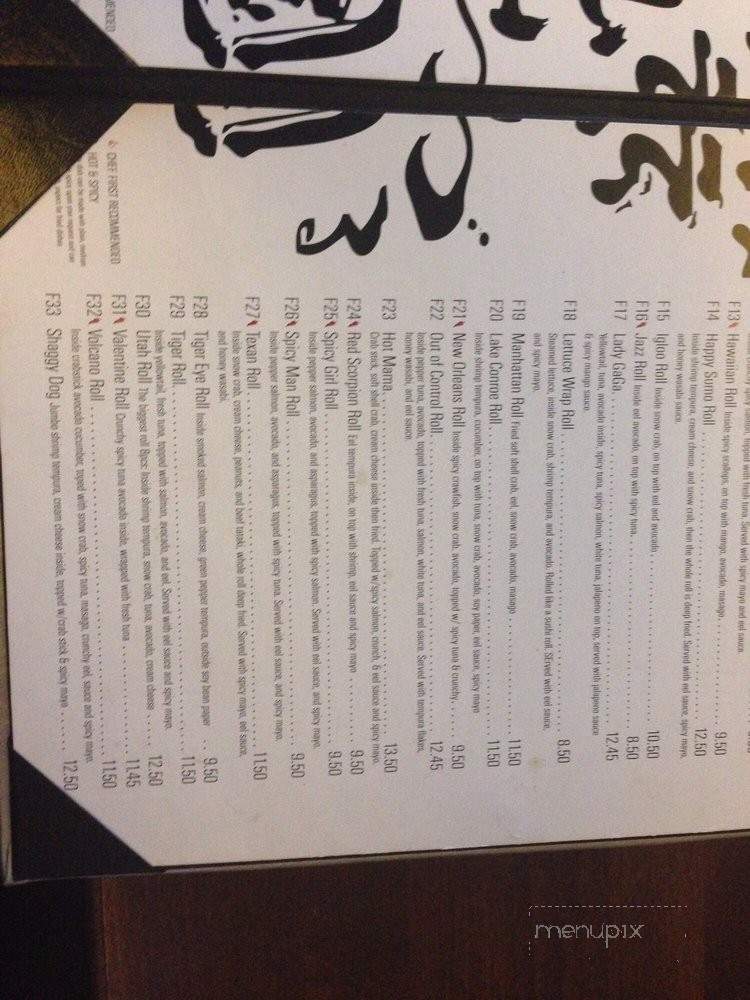 topped with fresh tuna. Served with spicy mayo and eel sauce.
F13 Hawaiian Roll Inside spicy scallops, on top with mango, avocado, masago. 9.50
F14 Happy Sumo Roll 12.50
Inside shrimp tempura, cream cheese, and snow crab, then the whole roll is deep fried. Served with eel sauce, spicy mayo,
and honey wasabi sauce.
F15 Igloo Roll Inside snow crab, on top with eel and avocado 10.50
F16 Jazz Roll Inside eel avocado, on top with spicy tuna 8.50
F17 Lady GaGa 12.45
Yellowtail, tuna, avocado inside, spicy tuna, spicy salmon, white tuna, jalapeno on top, served with jalapeno sauce
& spicy mango sauce.
F18 Lettuce Wrap Roll 8.50
Steamed lettuce, inside snow crab, shrimp tempura, and avocado. Rolled like a sushi roll. SErved with eel sauce,
and spicy mayo.
F19 Manhattan Roll Fried soft shell crab, eel, snow crab, avocado, masago 11.50
F20 Lake Conroe Roll 11.50
Inside shrimp tempura, cucumber, on top with tuna, snow crab, avocado, soy paper, eel sauce, spicy mayo
F21 New Orleans Roll Inside spicy crawfish, snow crab, avocado, topped w/ spicy tuna & crunchy 9.50
F22 Out of Control Roll 12.45
Inside pepper tuna, avocado, topped with fresh tuna, salmon, white tuna, and eel sauce. Served with tempura flakes,
honey wasabi, and eel sauce.
F23 Hot Mama 13.50
Crab stick, soft shell crab, cream cheese inside then fried. Topped w/ spicy salmon, crunch, & eel sauce and spicy mayo.
F24 Red Scorpion Roll Eel tempura inside, on top with shrimp, eel sauce and spicy mayo 9.50
F25 Spicy Girl Roll 9.50
Inside pepper salmon, avocado, and asparagus, topped with spicy salmon. Served with eel sauce, and spicy mayo.
F26 Spicy Man Roll 9.50
Inside pepper salmon, avocado, and asparagus, topped with spicy tuna. Served with eel sauce, and spicy mayo.
F27 Texan Roll 11.50
Inside snow crab, cream cheese, peanuts, and beef tataki, whole roll deep fried. Served with spicy mayo, eel sauce,
and honey wasabi.
F28 Tiger Eye Roll Inside smoked salmon, cream cheese, green pepper tempura, outside soy bean paper 9.50
F29 Tiger Roll 11.50
Inside yellowtail, fresh tuna, topped with salmon, avocado, and eel. Served with eel sauce and spicy mayo.
F30 Utah Roll The biggest roll 8pcs: Inside shrimp tempura, snow crab, tuna, avocado, cream cheese 12.50
F31 Valentine Roll Crunchy spicy tuna avocado inside, wrapped with fresh tuna 11.45
F32 Volcano Roll 11.50
Inside crabstick avocado cucumber, toped with snow crab, spicy tuna, masago, crunchy eel, sauce and spicy mayo.
F33 Shaggy Dog Jumbo shrimp tempura, cream cheese inside, topped w/crab stick & spicy mayo 12.50
CHEF FIRST RECOMMENDED
HOT & SPICY
menupix